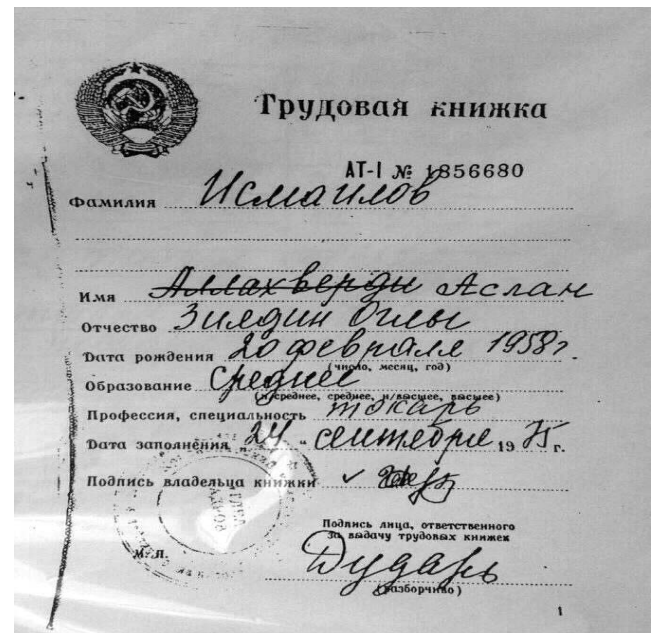 Трудовая книжка
АТ-I № 1856680
Фамилия Исмаилов
Имя Аллахверди Аслан
Отчество Зиядин Оглы
Дата рождения 20 февраля 1958 г.
(число, месяц, год)
Образование Среднее
(н/среднее, среднее, н/высшее, высшее)
Профессия, специальность токарь
Дата заполнения „24“ сентября 1975 г.
Подпись владельца книжки
Подпись лица, ответственного
за выдачу трудовых книжек
М. П.
Дударь
(разборчиво)
1